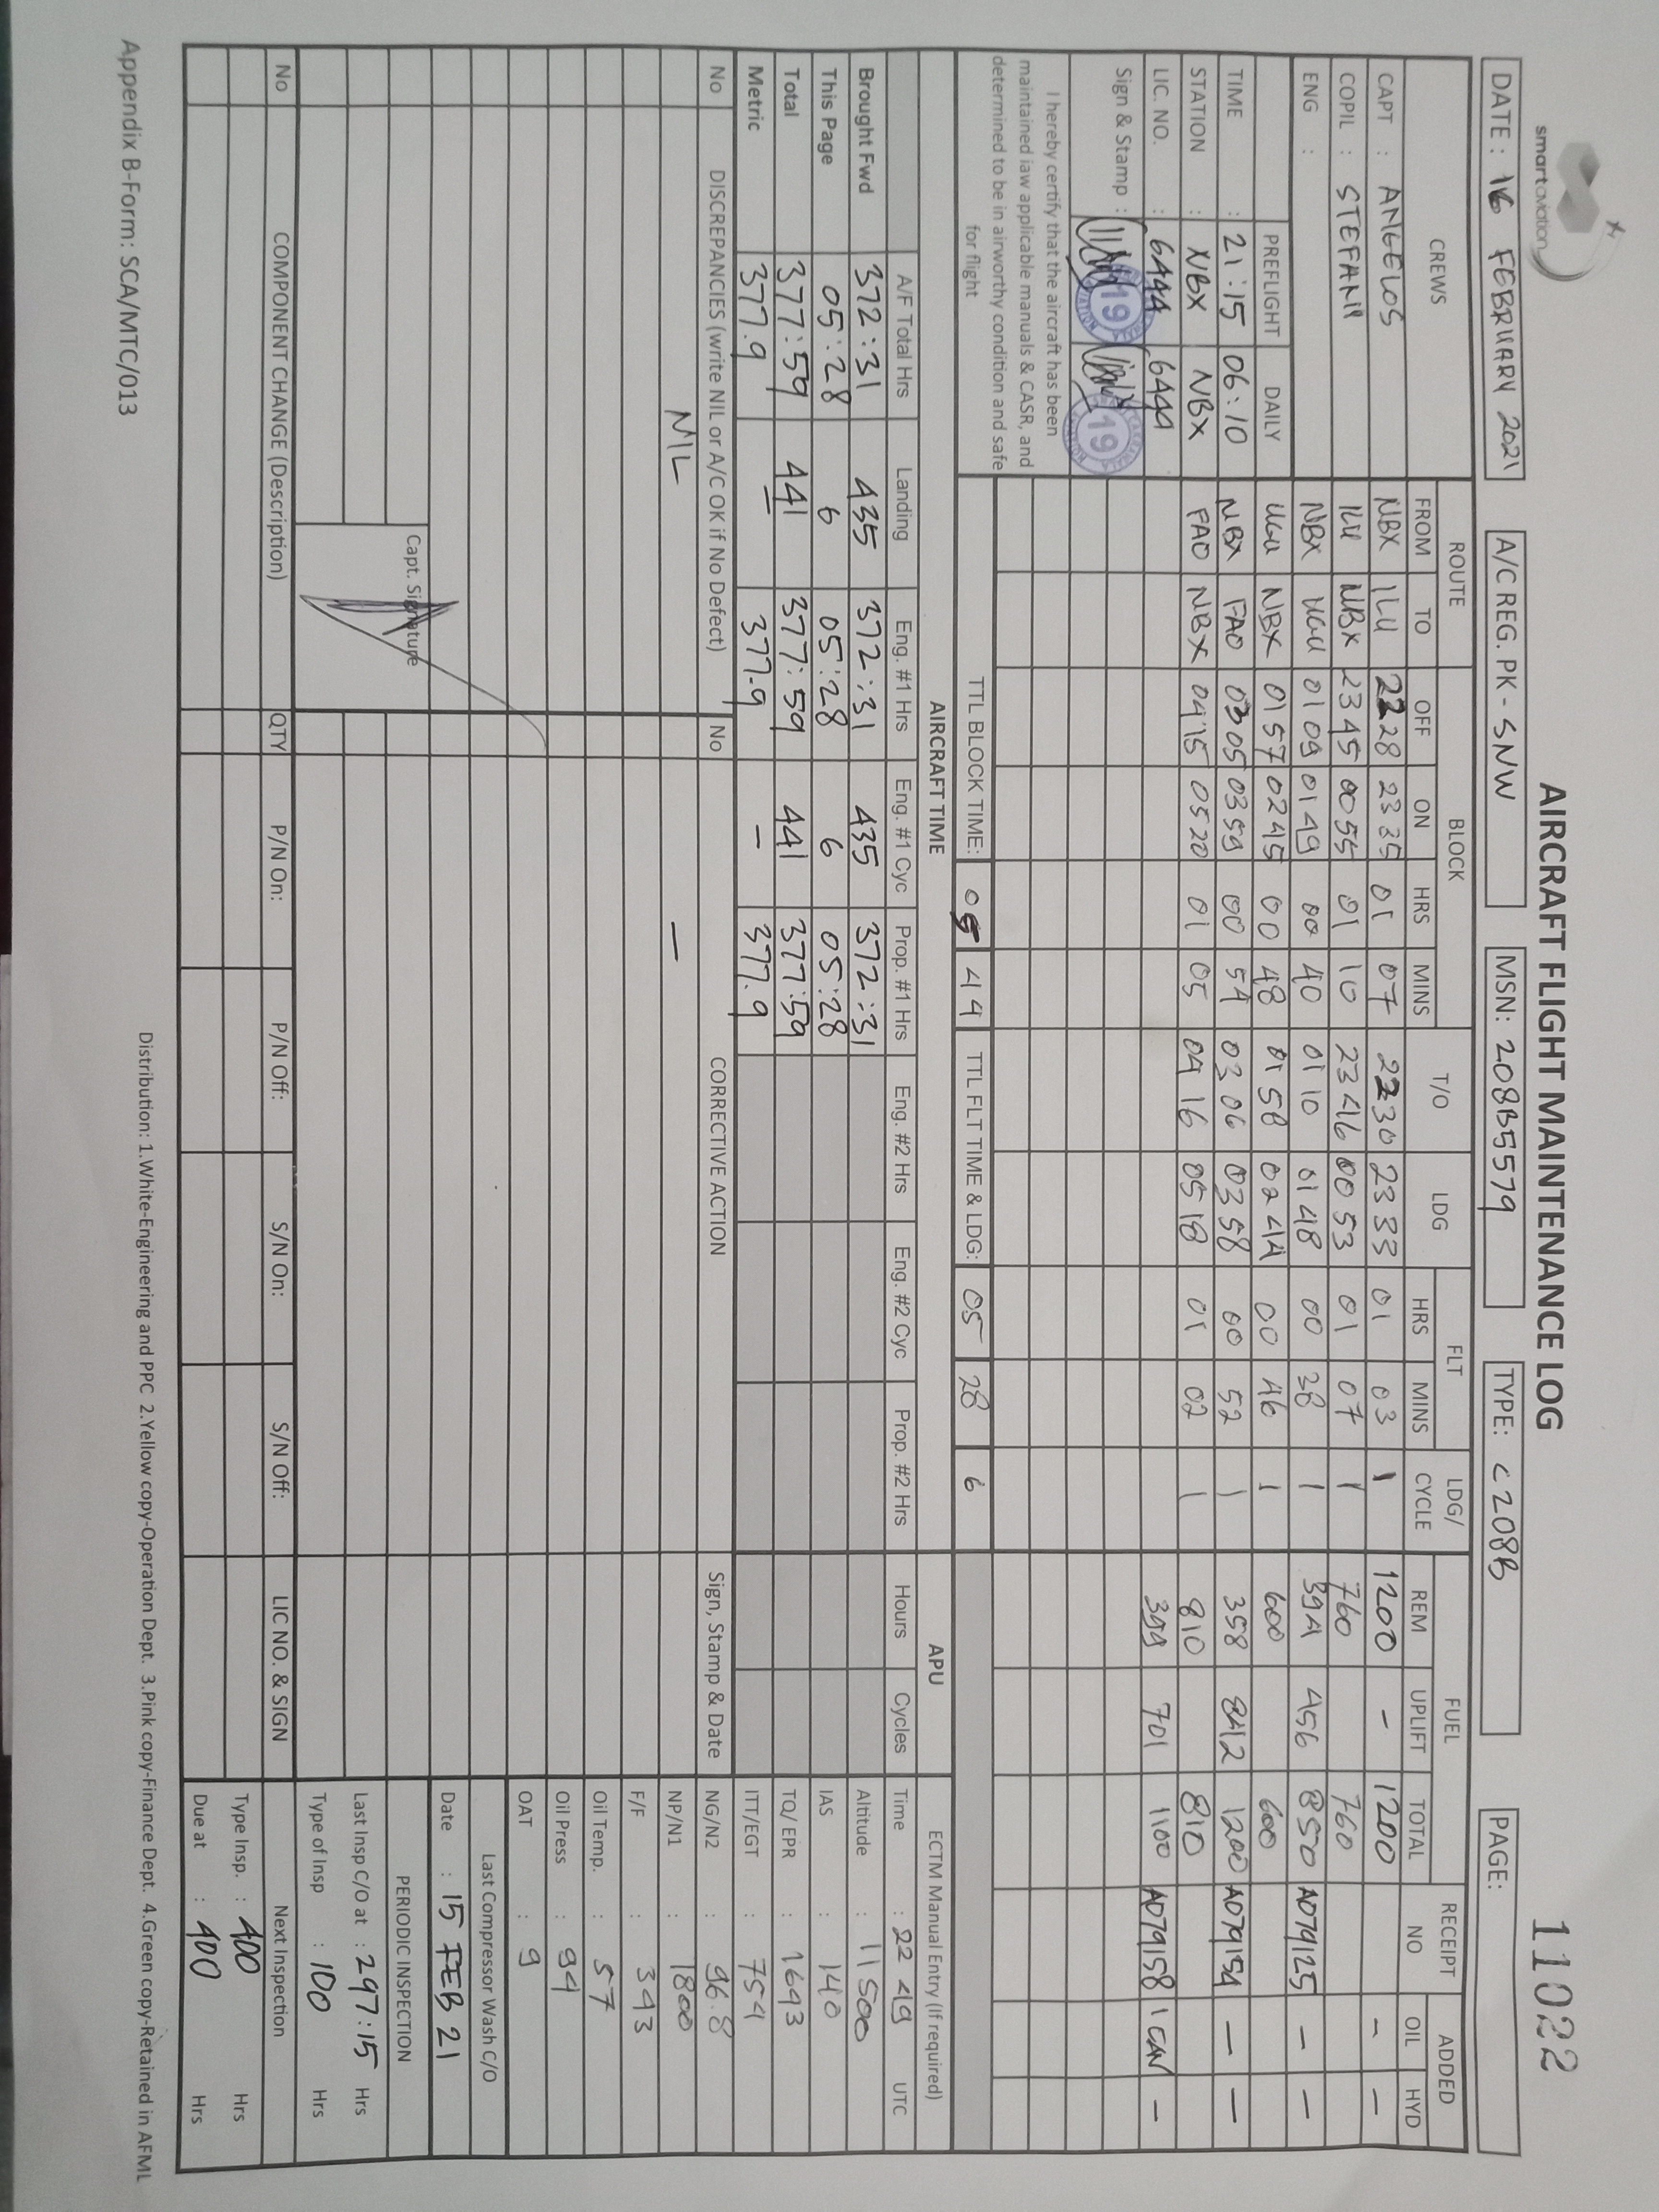 smartaviation
AIRCRAFT FLIGHT MAINTENANCE LOG
11022
DATE : 16 FEBRUARY 2021 A/C REG. PK - SNW MSN: 208B5579 TYPE: C208B PAGE:
CREWS ROUTE BLOCK T/O LDG FLT LDG/ CYCLE FUEL RECEIPT NO ADDED
FROM TO OFF ON HRS MINS HRS MINS REM UPLIFT TOTAL OIL HYD
CAPT : ANGELOS NBX ILU 2228 2335 01 07 2230 2333 01 03 1 1200 - 1200 - -
COPIL : STEFANI NBX 2345 0055 01 10 2346 0053 01 07 1 760 760
ENG : NBX 0109 0149 00 40 0110 0148 00 38 1 394 456 850 A079125 - -
PREFLIGHT DAILY NBX 0157 0245 00 48 0158 0244 00 46 1 600 600
TIME : 21:15 06:10 NBX FAO 0305 0359 00 54 0306 0358 00 52 1 358 842 1200 A079154 - -
STATION : NBX NBX FAO NBX 0415 0520 01 05 0416 0518 01 02 1 810 810
LIC. NO. : 6444 6444 399 701 1100 A079158 1 CAN -
Sign & Stamp : 19 19
I hereby certify that the aircraft has been
maintained iaw applicable manuals & CASR, and
determined to be in airworthy condition and safe
for flight
TTL BLOCK TIME: 05 44 TTL FLT TIME & LDG: 05 28 6
AIRCRAFT TIME APU ECTM Manual Entry (If required)
A/F Total Hrs Landing Eng. #1 Hrs Eng. #1 Cyc Prop. #1 Hrs Eng. #2 Hrs Eng. #2 Cyc Prop. #2 Hrs Hours Cycles Time : 22 49 UTC
Brought Fwd 372:31 435 372:31 435 372:31 Altitude : 11500
This Page 05:28 6 05:28 6 05:28 IAS : 140
Total 377:59 441 377:59 441 377:59 TQ/ EPR : 1643
Metric 377.9 - 377.9 - 377.9 ITT/EGT : 754
No DISCREPANCIES (write NIL or A/C OK if No Defect) No CORRECTIVE ACTION Sign, Stamp & Date NG/N2 : 96.8
NIL - NP/N1 : 1800
F/F : 343
Oil Temp. : 57
Oil Press : 94
OAT : 9
Last Compressor Wash C/O
Date : 15 FEB 21
Capt. Signature
PERIODIC INSPECTION
Last Insp C/O at : 297:15 Hrs
Type of Insp : 100 Hrs
No COMPONENT CHANGE (Description) QTY P/N On: P/N Off: S/N On: S/N Off: LIC NO. & SIGN Next Inspection
Type Insp. : 400 Hrs
Due at : 400 Hrs
Appendix B-Form: SCA/MTC/013
Distribution: 1.White-Engineering and PPC 2.Yellow copy-Operation Dept. 3.Pink copy-Finance Dept. 4.Green copy-Retained in AFML